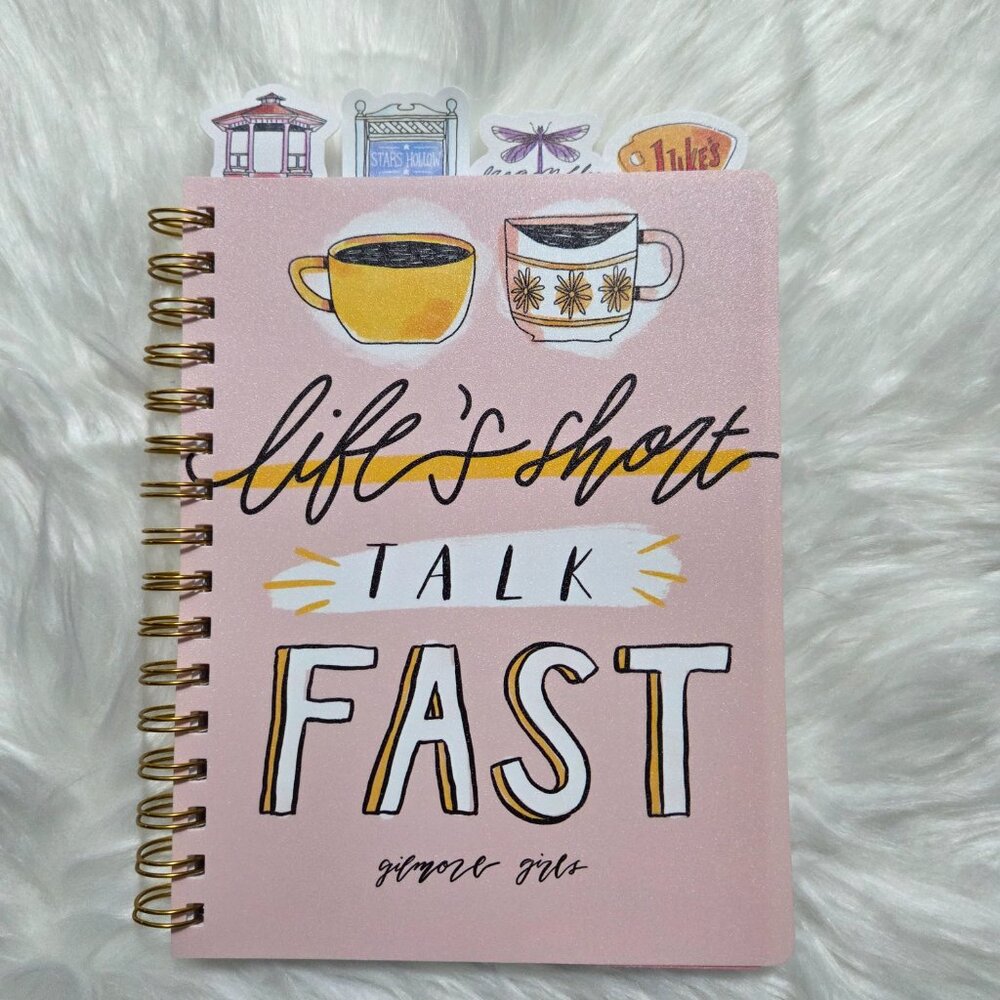 STARS HOLLOW
LUKE'S
life's short
TALK
FAST
gilmore girls